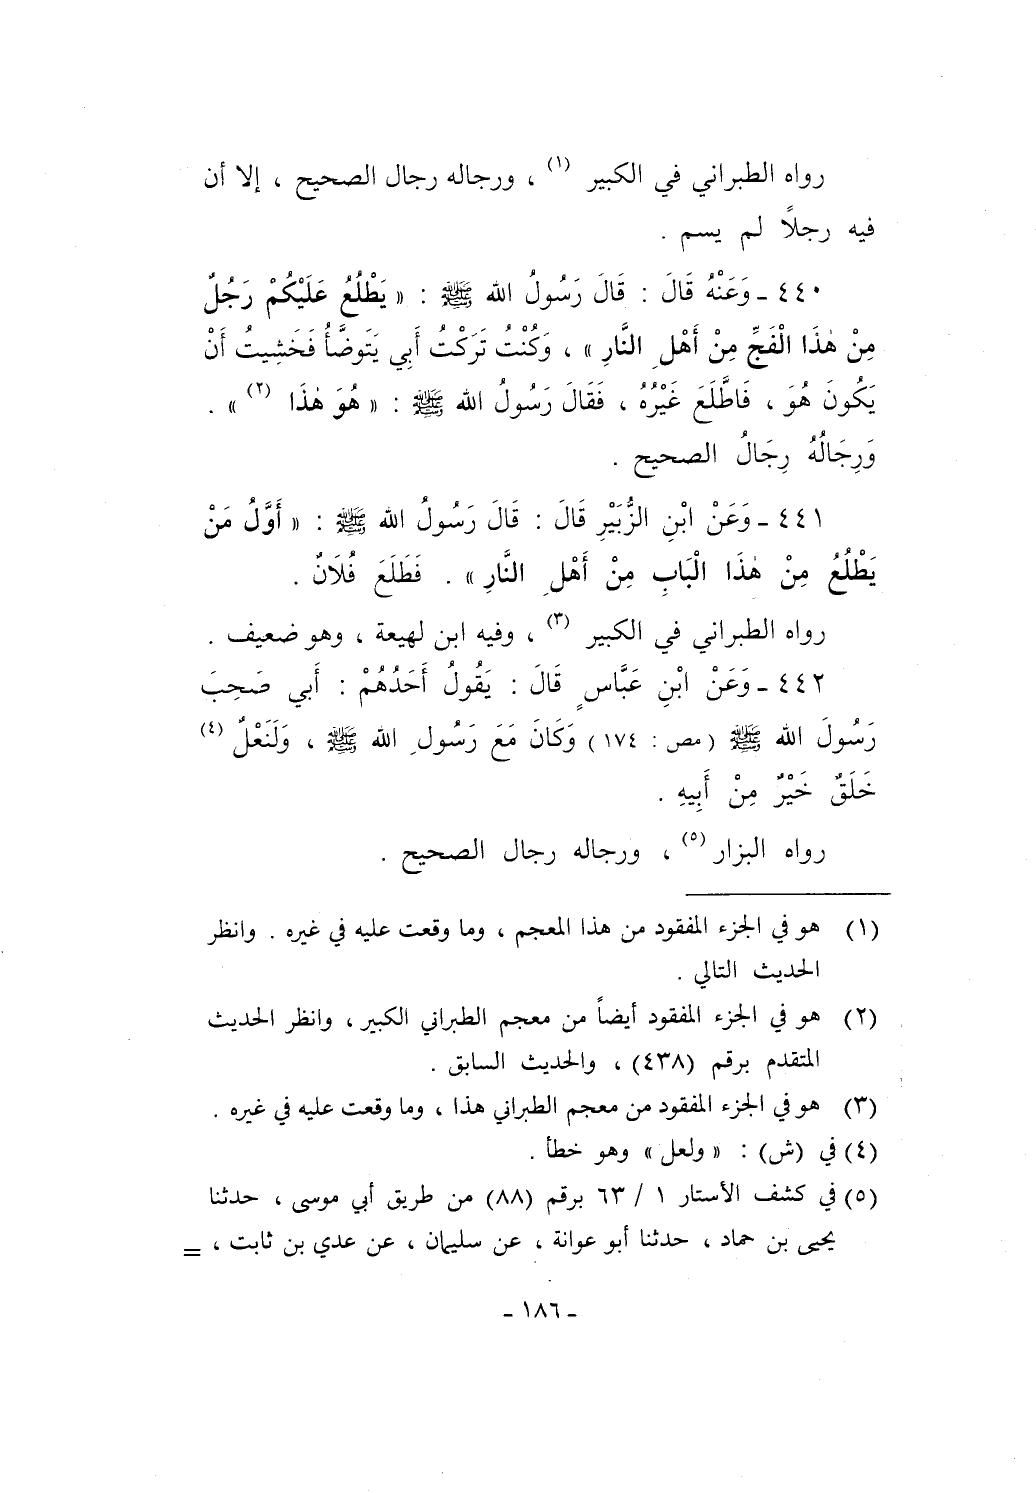 رواه الطبراني في الكبير (١) ، ورجاله رجال الصحيح ، إلا أن
فيه رجلاً لم يسم .
٤٤٠ ـ وَعَنْهُ قَالَ : قَالَ رَسُولُ الله ﷺ : « يَطْلُعُ عَلَيْكُمْ رَجُلٌ
مِنْ هٰذَا الْفَجِّ مِنْ أَهْلِ النَّارِ » ، وَكُنْتُ تَرَكْتُ أَبِي يَتَوَضَّأُ فَخَشِيتُ أَنْ
يَكُونَ هُوَ ، فَاطَّلَعَ غَيْرُهُ ، فَقَالَ رَسُولُ الله ﷺ : « هُوَ هٰذَا (٢) » .
وَرِجَالُهُ رِجَالُ الصحيح .
٤٤١ ـ وَعَنْ ابْنِ الزُّبَيْرِ قَالَ : قَالَ رَسُولُ الله ﷺ : « أَوَّلُ مَنْ
يَطْلُعُ مِنْ هٰذَا الْبَابِ مِنْ أَهْلِ النَّارِ » . فَطَلَعَ فُلَانٌ .
رواه الطبراني في الكبير (٣) ، وفيه ابن لهيعة ، وهو ضعيف .
٤٤٢ ـ وَعَنْ ابْنِ عَبَّاسٍ قَالَ : يَقُولُ أَحَدُهُمْ : أَبي صَحِبَ
رَسُولَ الله ﷺ ( مص : ١٧٤ ) وَكَانَ مَعَ رَسُولِ الله ﷺ ، وَلَنَعْلٌ (٤)
خَلَقٌ خَيْرٌ مِنْ أَبِيهِ .
رواه البزار (٥) ، ورجاله رجال الصحيح .
(١) هو في الجزء المفقود من هذا المعجم ، وما وقعت عليه في غيره . وانظر
الحديث التالي .
(٢) هو في الجزء المفقود أيضاً من معجم الطبراني الكبير ، وانظر الحديث
المتقدم برقم (٤٣٨) ، والحديث السابق .
(٣) هو في الجزء المفقود من معجم الطبراني هذا ، وما وقعت عليه في غيره .
(٤) في (ش) : « ولعل » وهو خطأ .
(٥) في كشف الأستار ١ / ٦٣ برقم (٨٨) من طريق أبي موسى ، حدثنا
يحيى بن حماد ، حدثنا أبو عوانة ، عن سليمان ، عن عدي بن ثابت ، =
ـ ١٨٦ ـ